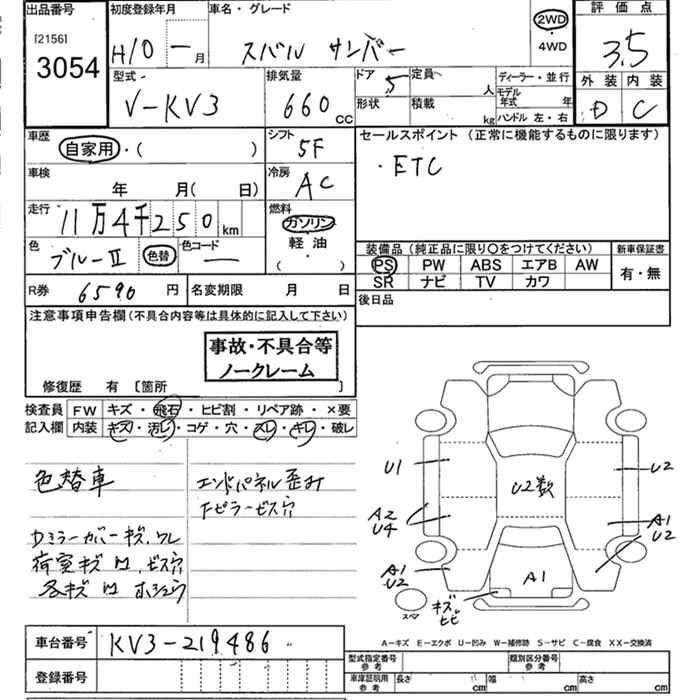 出品番号
[2156]
3054
初度登録年月
H10 - 月
車名・グレード
スバル サンバー
2WD
・4WD
評価点
3.5
外装 内装
D C
型式
V-KV3
排気量
660 cc
ドア 5
定員 人
形状
積載 kg
ディーラー・並行
モデル年式 年
ハンドル 左・右
車歴
自家用・( )
シフト
5F
セールスポイント (正常に機能するものに限ります)
・ETC
車検
年 月( 日)
冷房
AC
走行
11万4千250km
燃料
ガソリン
軽油
・( )
色
ブルーII
色替
色コード
—
装備品 (純正品に限り〇をつけてください)
PS PW ABS エアB AW
SR ナビ TV カワ
新車保証書
有・無
R券 6590 円
名変期限 月 日
後日品
注意事項申告欄(不具合内容等は具体的に記入して下さい)
事故・不具合等
ノークレーム
修復歴 有 [箇所 ]
検査員記入欄
FW キズ・飛石・ヒビ割・リペア跡・×要
内装 キズ・汚レ・コゲ・穴・スレ・キレ・破レ
色替車
エンドパネル歪み
ピラービス穴
ミラーカバーキズ、ワレ
荷室キズ凹、ビス穴
各キズ凹ホシュウ
U1
U2
U2数
A2
U4
A1
U2
A1
U2
A1
キズ、ヒビ
スペア
A－キズ E－エクボ U－凹み W－補修跡 S－サビ C－腐食 XX－交換済
車台番号 KV3-219486
登録番号
型式指定番号 参考
類別区分番号 参考
車庫証明用 参考
長さ cm 幅 cm 高さ cm